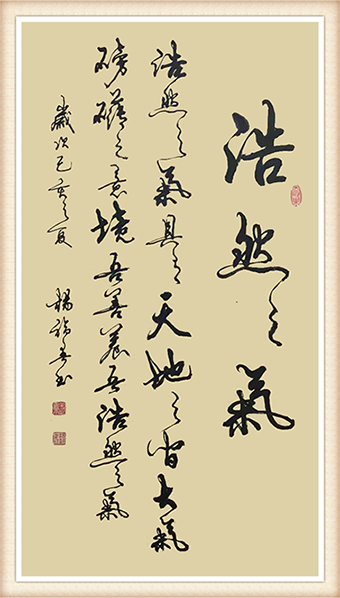 浩然之氣
浩然之氣具有天地之間大氣
磅礴之意境吾善養吾浩然之氣
歲次己亥之夏 楊 书